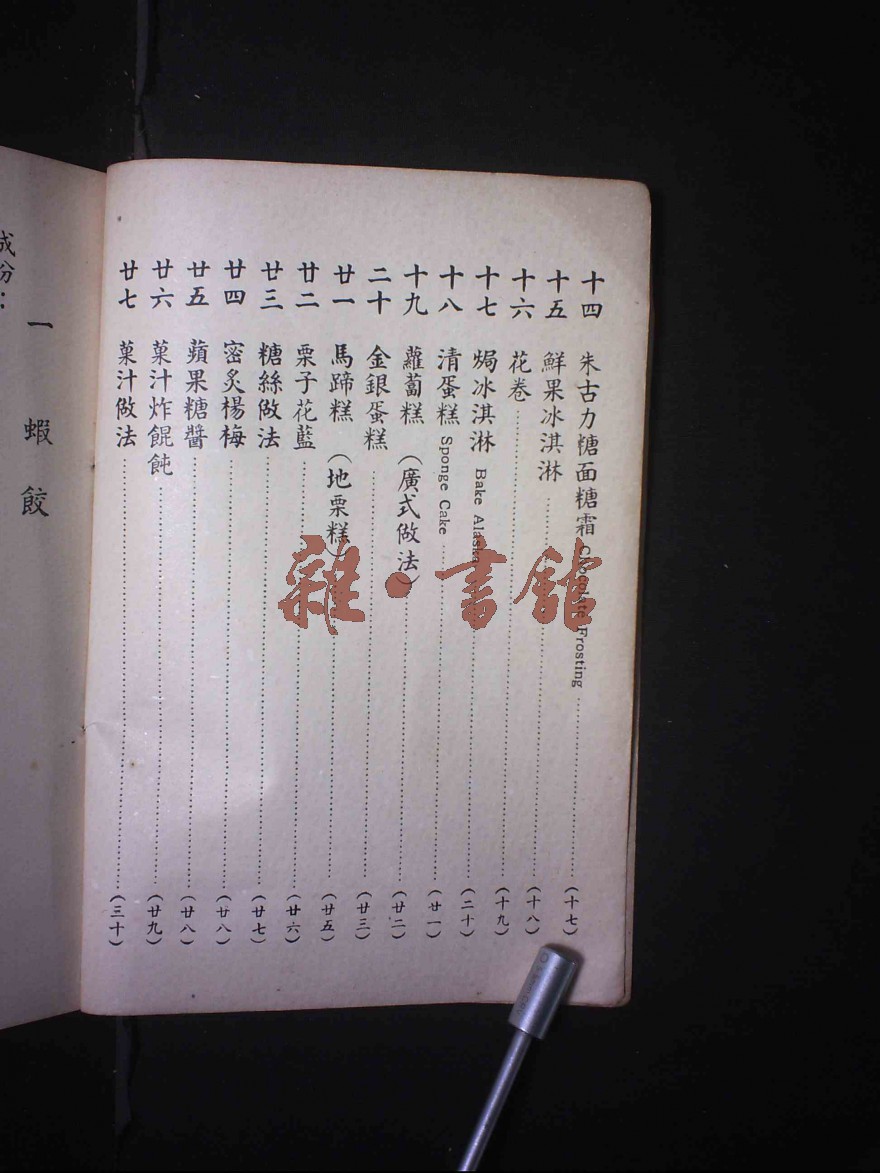 十四 朱古力糖面糖霜 Chocolate Frosting (十七)
十五 鮮果冰淇淋 (十八)
十六 花卷 (十九)
十七 焗冰淇淋 Bake Alaska (二十)
十八 清蛋糕 Sponge Cake (廿一)
十九 蘿蔔糕(廣式做法) (廿二)
二十 金銀蛋糕 (廿三)
廿一 馬蹄糕(地栗糕) (廿五)
廿二 栗子花藍 (廿六)
廿三 糖絲做法 (廿七)
廿四 密炙楊梅 (廿八)
廿五 蘋果糖醬 (廿八)
廿六 菓汁炸餛飩 (廿九)
廿七 菓汁做法 (三十)
一 蝦餃
成份:
雜·書舘